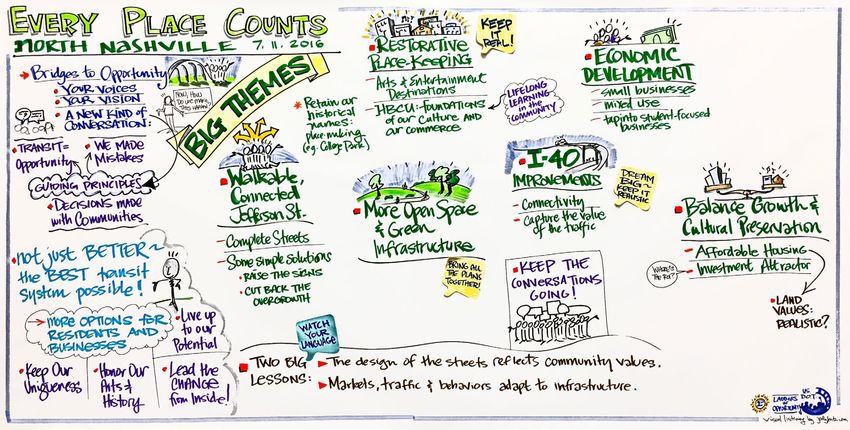 EVERY PLACE COUNTS
NORTH NASHVILLE 7.11.2016
Bridges to Opportunity
• YOUR VOICES
• YOUR VISION
• A NEW KIND OF
CONVERSATION:
NOW, HOW
DO WE MAKE
THIS HAPPEN?
• TRANSIT=
Opportunity
• WE MADE
MistakeS
GUIDING PRINCIPLES
• DECISIONS MADE
with COMMUNITIES
BIG THEMES
• not just BETTER~
the BEST transit
system possible!
→ MORE OPTIONS FOR
RESIDENTS AND
BUSINESSES
• Live up
to our
Potential
• Keep Our
Uniqueness
• Honor Our
Arts &
History
• Lead the
CHANGE
from Inside!
* Retain our
historical
names:
place making
(e.g. College Park)
• Walkable,
Connected
Jefferson St.
– Complete Streets
– Some simple solutions
• RAISE THE SIGNS
• CUT BACK THE
OVERGROWTH
• RESTORATIVE
PLACE-KEEPING
– Arts & Entertainment
Destinations
– HBCU: foundations
of our culture and
our commerce
KEEP
IT
REAL!
LIFELONG
LEARNING
in the
COMMUNITY
• ECONOMIC
DEVELOPMENT
– small businesses
– mixed use
– tap into student-focused
businesses
• More Open Space
& Green
Infrastructure
BRING ALL
THE PLANS
TOGETHER!
• I-40
IMPROVEMENTS
– Connectivity
– Capture the value
of the traffic
DREAM
BIG~
KEEP IT
REALISTIC
• KEEP THE
CONVERSATIONS
GOING!
• Balance Growth &
Cultural Preservation
– Affordable Housing
– Investment Attractor
WHERE'S
THE ROI?
• LAND
VALUES:
REALISTIC?
WATCH
YOUR
LANGUAGE
• TWO BIG
LESSONS:
▸ The design of the streets reflects community values.
▸ Markets, traffic & behaviors adapt to infrastructure.
LADDERS
OF
OPPORTUNITY
US
DOT
visual listening by